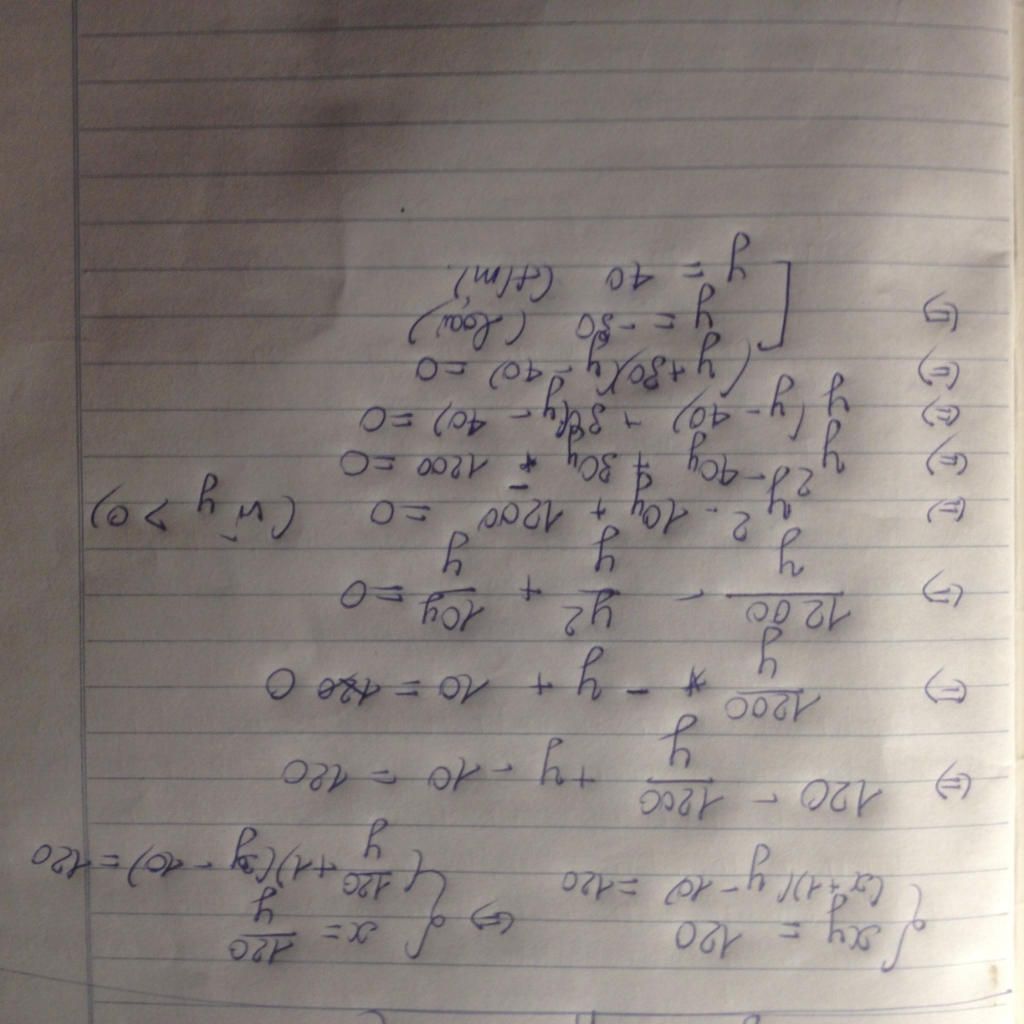 { xy = 120 (=) { x = 120/y
{ (x+1)(y-10) = 120 { (120/y + 1)(y - 10) = 120
(=) 120 - 1200/y + y - 10 = 120
(=) 1200/y - y + 10 = 0
(=) 1200/y - y²/y + 10y/y = 0
(=) y² - 10y - 1200 = 0 (vì y > 0)
(=) y² - 40y + 30y - 1200 = 0
(=) y(y - 40) + 30(y - 40) = 0
(=) (y + 30)(y - 40) = 0
(=) [ y = -30 (loại)
[ y = 40 (t/m)